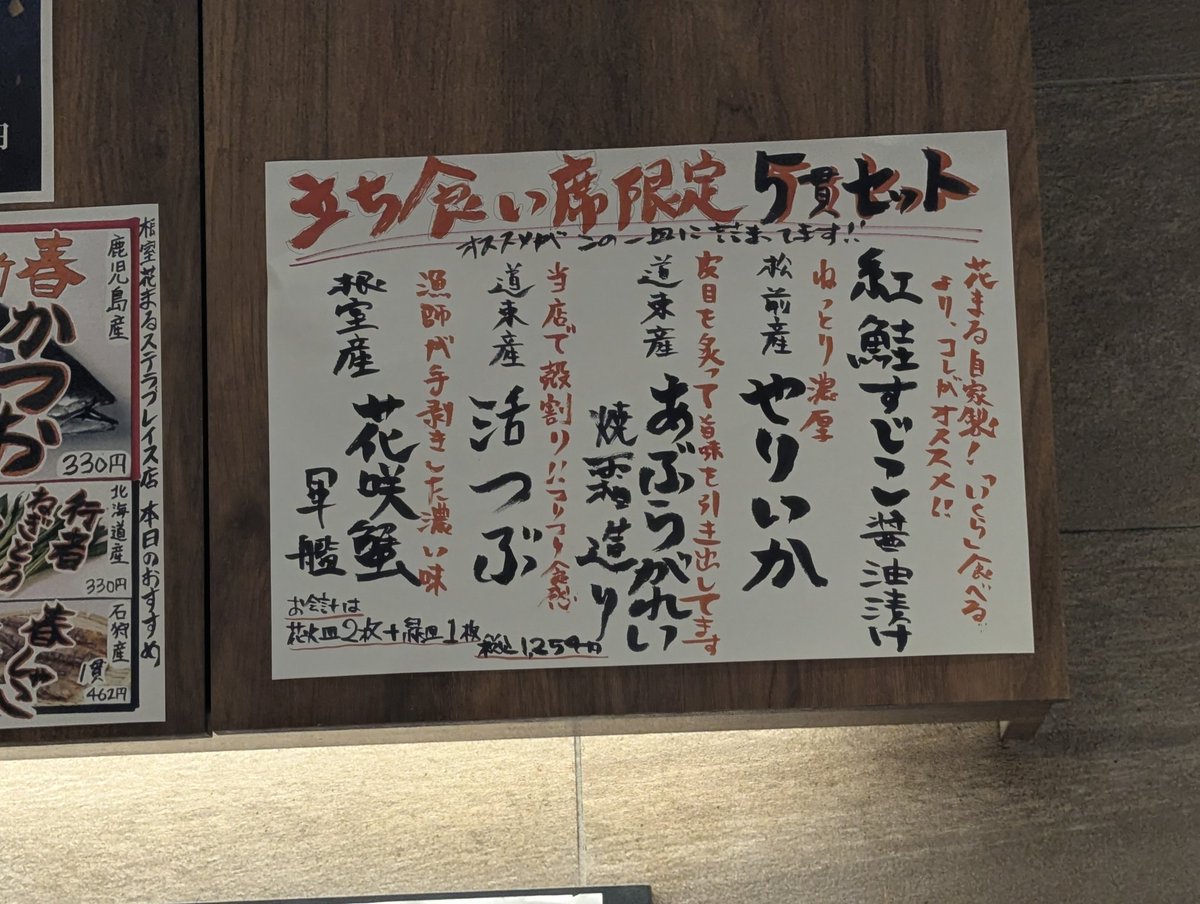 立ち食い席限定 5貫セット
オススメがこの一皿に詰まってます!!
花まる自家製!「いくら」食べる
より、コレがオススメ!!
紅鮭すじこ醤油漬け
ねっとり濃厚
松前産 やりいか
皮目を炙って旨味を引き出してます
道東産 あぶらがれい
焼霜造り
当店で殻割り!!コリコリ食感
道東産 活つぶ
漁師が手剥きした濃い味
根室産 花咲蟹
軍艦
お会計は
花火皿2枚+緑皿1枚 税込1,254円
円
根室花まるステラプレイス店 本日のおすすめ
鹿児島産
春
かつお
330円
北海道産
行者
330円
石狩産
1貫
462円